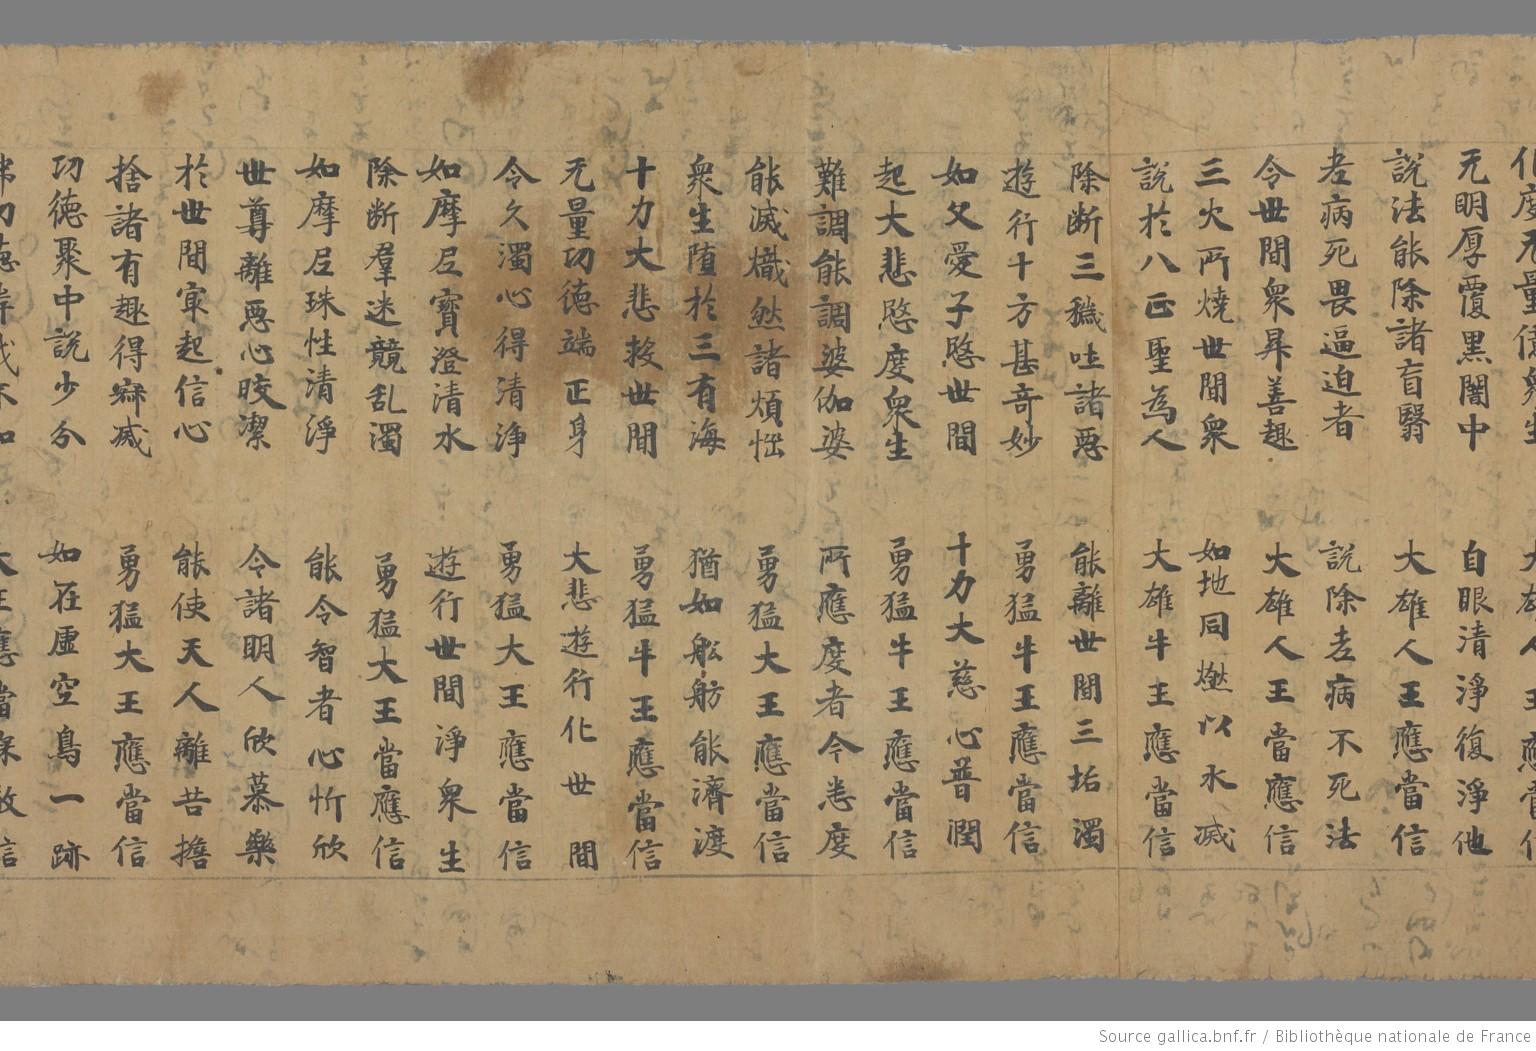 化度无量億衆生 大雄人王應當信
无明厚覆黒闇中 自眼清淨復淨他
說法能除諸盲翳 大雄人王應當信
老病死畏逼迫者 說除老病不死法
令世間衆昇善趣 大雄人王當應信
三火所燒世間衆 如地同燃以水滅
說於八正聖為人 大雄牛王應當信
除断三穢吐諸惡 能離世間三垢濁
遊行十方甚竒妙 勇猛牛王應當信
如父愛子愍世間 十力大慈心普潤
起大悲愍度衆生 勇猛牛王應當信
難調能調婆伽婆 所應度者今悉度
能滅熾然諸煩惱 勇猛大王應當信
衆生堕於三有海 猶如舩舫能濟渡
十力大悲救世間 勇猛牛王應當信
无量功徳端正身 大悲遊行化世間
令久濁心得清浄 勇猛大王應當信
如摩尼寶澄清水 遊行世間淨衆生
除断羣迷競乱濁 勇猛大王當應信
如摩尼珠性清淨 能令智者心忻欣
世尊離惡心皎潔 令諸明人欣慕樂
於世間㝡起信心 能使天人離苦擔
捨諸有趣得寂滅 勇猛大王應當信
功徳聚中說少分 如在虛空鳥一跡
大王應當
Source gallica.bnf.fr / Bibliothèque nationale de France